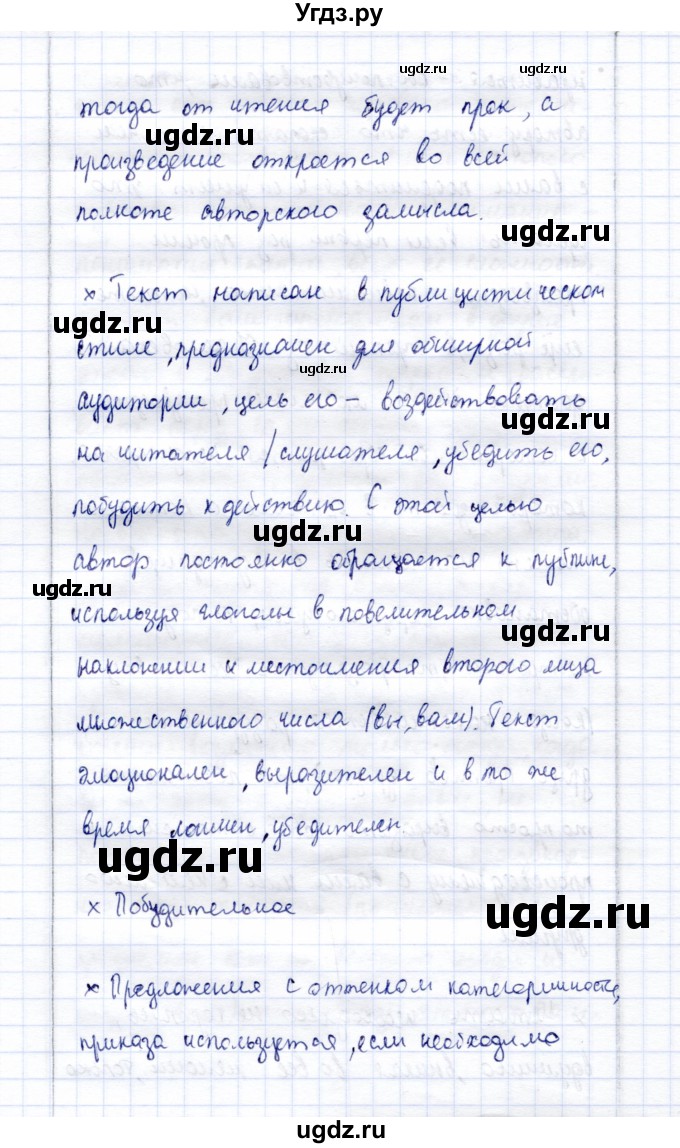 Угдз.ру
ugdz.ru ugdz.ru
тогда от чтения будет прок, а
ugdz.ru
произведение откроется во всей
ugdz.ru
полноте авторского замысла.
ugdz.ru
× Текст написан в публицистическом
ugdz.ru
стиле, предназначен для обширной
ugdz.ru
аудитории, цель его – воздействовать
ugdz.ru
на читателя / слушателя, убедить его,
побудить к действию. С этой целью
ugdz.ru
автор постоянно обращается к публике,
ugdz.ru
используя глаголы в повелительном
ugdz.ru
наклонении и местоимения второго лица
множественного числа (вы, вам). Текст
эмоционален, выразителен и в то же
время логичен, убедителен.
ugdz.ru
× Побудительное
ugdz.ru
× Предложения с оттенком категоричности,
приказа используется, если необходимо
ugdz.ru